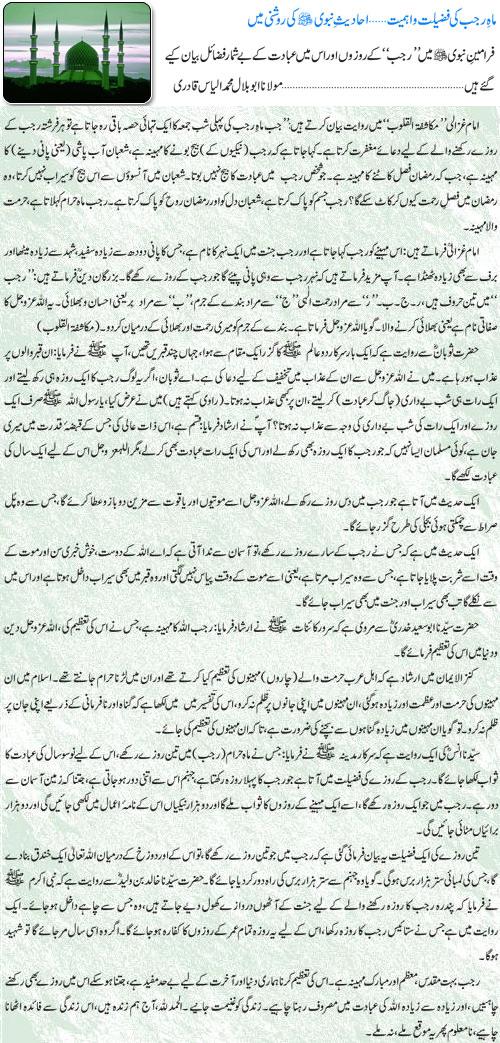 ماہِ رجب کی فضیلت و اہمیت......احادیثِ نبوی ﷺ کی روشنی میں
فرامینِ نبوی ﷺ میں ’’رجب‘‘ کے روزوں اور اس میں عبادت کے بے شمار فضائل بیان کیے
گئے ہیں......مولانا ابو بلال محمد الیاس قادری
امام غزالیؒ ’’مکاشفۃ القلوب‘‘ میں روایت بیان کرتے ہیں: ’’جب ماہِ رجب کی پہلی شب جمعہ کا ایک تہائی حصہ باقی رہ جاتا ہے تو ہر فرشتہ رجب کے
روزے رکھنے والے کے لیے دعائے مغفرت کرتا ہے۔ کہا جاتا ہے کہ رجب (نیکیوں کے) بیج بونے کا مہینہ ہے، شعبان آب پاشی (یعنی پانی دینے) کا
مہینہ ہے، جب کہ رمضان فصل کاٹنے کا مہینہ ہے۔ جو شخص رجب میں عبادت کا بیج نہیں بوتا۔ شعبان میں آنسوؤں سے اس بیج کو سیراب نہیں کرتا، وہ
رمضان میں فصلِ رحمت کیوں کر کاٹ سکے گا؟ رجب جسم کو پاک کرتا ہے، شعبان دل کو اور رمضان روح کو پاک کرتا ہے۔ رجب ماہِ حرام کہلاتا ہے، حرمت
والا مہینہ۔
امام غزالیؒ فرماتے ہیں: اس مہینے کو رجب کہا جاتا ہے اور رجب جنت میں ایک نہر کا نام ہے، جس کا پانی دودھ سے زیادہ سفید، شہد سے زیادہ میٹھا اور
برف سے بھی زیادہ ٹھنڈا ہے۔ آپ مزید فرماتے ہیں کہ نہرِ رجب سے وہی پانی پیئے گا جو رجب کے روزے رکھے گا۔ بزرگانِ دینؒ فرماتے ہیں: ’’رجب
‘‘ میں تین حروف ہیں، ر۔ج۔ب۔ ’’ر‘‘ سے مراد رحمتِ الٰہی ’’ج‘‘ سے مراد بندے کے جرم، ’’ب‘‘ سے مراد بِر یعنی احسان و بھلائی۔ یہ اللہ عزوجل کا
صفاتی نام ہے یعنی بھلائی کرنے والا۔ گویا اللہ عزوجل فرماتا ہے۔ بندے کے جرم کو میری رحمت اور بھلائی کے درمیان کردو۔ (مکاشفۃ القلوب)
حضرت ثوبانؓ سے روایت ہے کہ ایک بار سرکارِ دو عالم ﷺ کا گزر ایک مقام سے ہوا، جہاں چند قبریں تھیں، آپ ﷺ نے فرمایا: ان قبروں پر
عذاب ہو رہا ہے۔ میں نے اللہ عزوجل سے ان کے عذاب میں تخفیف کے لیے دعا کی ہے۔ اے ثوبان، اگر یہ لوگ رجب کا ایک روزہ ہی رکھ لیتے اور
ایک رات ہی شب بے داری (جاگ کر عبادت) کر لیتے، ان پر بھی عذاب نہ ہوتا۔ (راوی کہتے ہیں) میں نے عرض کیا، یا رسول اللہ ﷺ صرف ایک
روزے اور ایک رات کی شب بے داری کی وجہ سے عذاب نہ ہوتا؟ آپؐ نے ارشاد فرمایا: قسم ہے، اس ذات عالی کی جس کے قبضۂ قدرت میں میری
جان ہے، کوئی مسلمان ایسا نہیں کہ جو رجب کا ایک روزہ بھی رکھ لے اور اس کی ایک رات عبادت بھی کرلے، مگر اللہ عزوجل اس کے لیے ایک سال کی
عبادت لکھے گا۔
ایک حدیث میں آتا ہے جو رجب میں دس روزے رکھ لے، اللہ عزوجل اسے موتیوں اور یاقوت سے مزین دو بازو عطا کرے گا، جس سے وہ پل
صراط سے چمکتی ہوئی بجلی کی طرح گزر جائے گا۔
ایک حدیث میں ہے کہ جس نے رجب کے سارے روزے رکھے، تو آسمان سے ندا آتی ہے کہ اے اللہ کے دوست، خوش خبری سن اور موت کے
وقت اسے شربت پلایا جاتا ہے، جس سے وہ سیراب مرتا ہے، یعنی اسے موت کے وقت پیاس نہیں لگتی اور وہ قبر میں بھی سیراب داخل ہوتا ہے اور اس میں
سے نکلے گا تب بھی سیراب اور جنت میں بھی سیراب جائے گا۔
حضرت سیّدنا ابو سعید خدریؓ سے مروی ہے کہ سرورِ کائنات ﷺ نے ارشاد فرمایا: رجب اللہ کا مہینہ ہے، جس نے اس کی تعظیم کی، اللہ عزوجل دین
و دنیا میں اس کی تعظیم فرمائے گا۔
کنز الایمان میں ارشاد ہے کہ اہلِ عرب حرمت والے (چاروں) مہینوں کی تعظیم کیا کرتے تھے اور ان میں لڑنا حرام جانتے تھے۔ اسلام میں ان
مہینوں کی حرمت اور عظمت اور زیادہ ہوگئی، ان مہینوں میں اپنی جانوں پر ظلم نہ کرو، اس کی تفسیر میں میں لکھا ہے کہ گناہ اور نافرمانی کے ذریعے اپنی جان پر
ظلم نہ کرو۔ تو گویا ان مہینوں میں زیادہ گناہوں سے بچنے کی ضرورت ہے، تا کہ ان مہینوں کی تعظیم کی جائے۔
سیّدنا انسؓ کی ایک روایت ہے کہ سرکارِ مدینہ ﷺ نے فرمایا: جس نے ماہِ حرام (رجب) میں تین روزے رکھے، اس کے لیے نو سو سال کی عبادت کا
ثواب لکھا جائے گا۔ رجب کے روزے کی فضیلت میں آتا ہے جو رجب کا پہلا روزہ رکھتا ہے، جہنم اس سے اتنی دور ہو جاتی ہے، جتنا کہ زمین آسمان سے
دور ہے۔ رجب میں جو ایک روزہ رکھے گا، اسے ایک مہینے کے روزوں کا ثواب ملے گا اور دو ہزار نیکیاں اس کے نامۂ اعمال میں لکھی جائیں گی اور دو ہزار
برائیاں مٹائی جائیں گی۔
تین روزے کی ایک فضیلت یہ بیان فرمائی گئی ہے کہ رجب میں جو تین روزے رکھے گا، تو اس کے اور دوزخ کے درمیان اللہ تعالیٰ ایک خندق بنا دے
گا، جس کی لمبائی ستر ہزار برس ہوگی۔ گویا وہ جہنم سے ستر ہزار برس کی راہ دور کر دیا جائے گا۔ حضرت سیّدنا خالد بن ولیدؓ سے روایت ہے کہ نبی اکرم ﷺ
نے فرمایا کہ پندرہ رجب کا روزہ رکھنے والے کے لیے جنت کے آٹھوں دروازے کھول دیے جاتے ہیں، وہ جس سے چاہے داخل ہو جائے۔ ایک
روایت میں ہے جس نے ستائیس رجب کا روزہ رکھا، اس کے لیے یہ روزہ تمام عمر کے روزوں کا کفارہ ہو جائے گا۔ اگر وہ اسی سال مر جائے گا تو شہید
ہوگا۔
رجب بہت مقدس، معظم اور مبارک مہینہ ہے۔ اس کی تعظیم کرنا ہماری دنیا اور آخرت کے لیے بے حد مفید ہے، جتنا ہو سکے اس میں روزے بھی رکھنے
چاہئیں، اور زیادہ سے زیادہ اللہ کی عبادت میں مصروف رہنا چاہیے۔ زندگی کو غنیمت جانیے۔ الحمدللہ، آج ہم زندہ ہیں، اس زندگی سے فائدہ اٹھانا
چاہیے، نا معلوم پھر یہ موقع ملے، نہ ملے۔